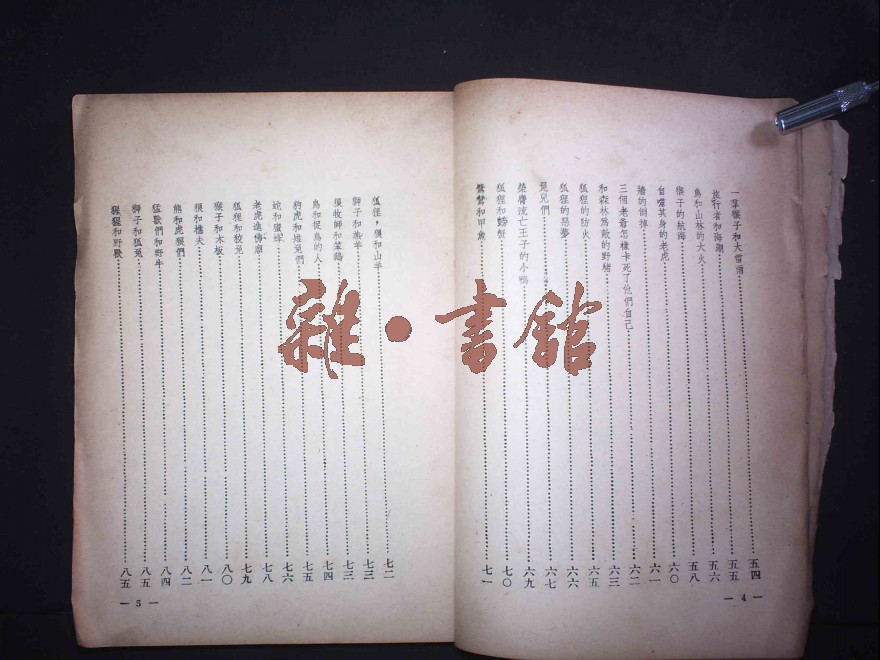 一羣猴子和大雷雨……五四
旅行者和海潮……五五
鳥和山林的大火……五六
猴子的航海……五八
自噬其身的老虎……六〇
牆的倒掉……六一
三個老爺怎樣卡死了他們自己……六二
和森林爲敵的野豬……六三
狐狸的防火……六五
狐狸的惡夢……六六
兄們……六七
流亡王子的小鴨……六九
狐狸和螃蟹……七〇
鴛鴦和甲魚……七一
— 4 —
狐狸，狼和山羊……七二
獅子和羔羊……七三
狼牧師和笨鷄……七三
鳥和捉鳥的人……七四
豹虎和雉兔們……七五
蛇和蜜蜂……七六
老虎進佛廟……七八
狐狸和狡兔……七九
猴子和木板……八〇
狼和樵夫……八一
熊和虎猴們……八二
猛獸們和野牛……八四
獅子和狐兔……八五
猩猩和野獸……八五
— 5 —
雜·書館